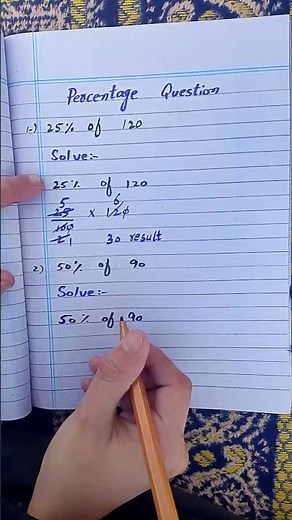 Percentage Question
1-) 25% of 120
Solve:-
25% of 120
5 6
25 x 120
100
2 1 30 result
2) 50% of 90
Solve:-
50% of 90